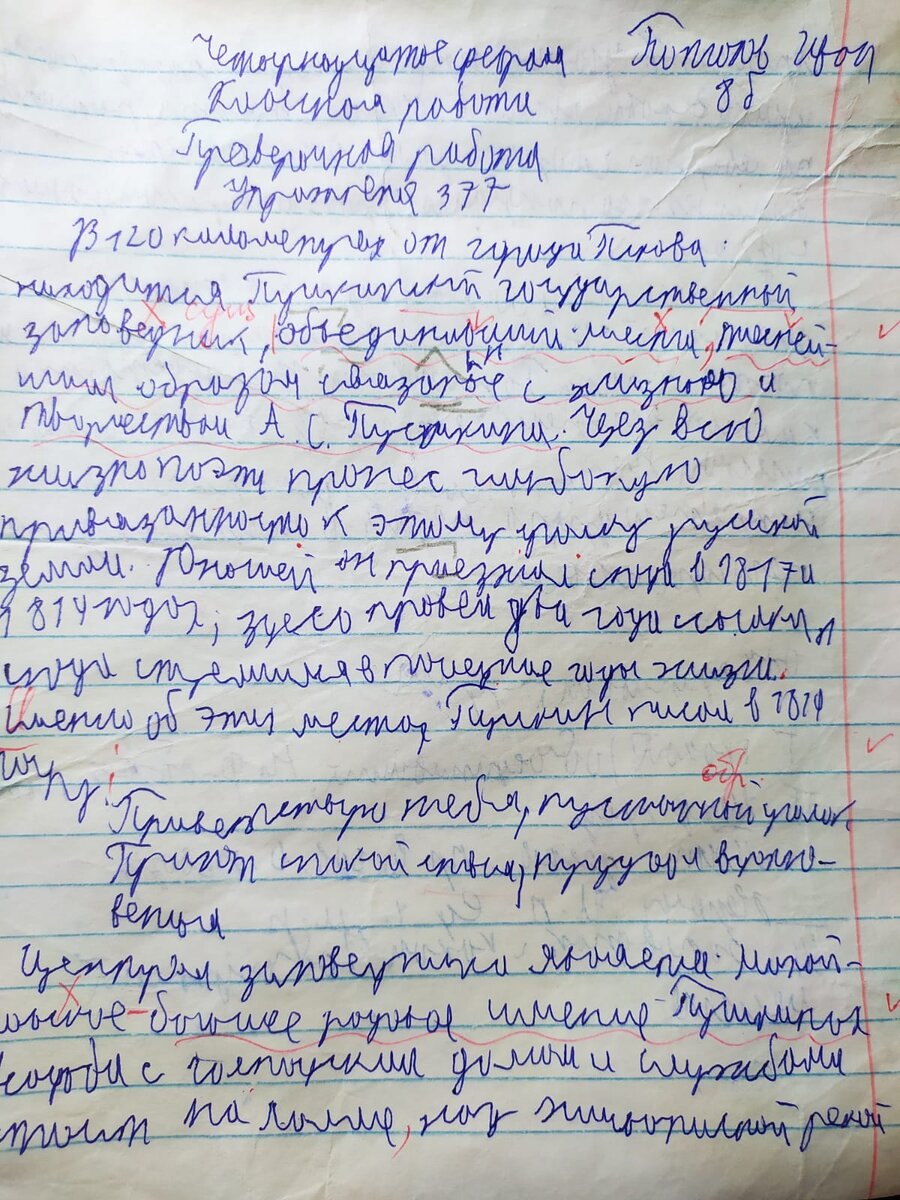 Четырнадцатое февраля
Иван
8б
Классная работа
Проверочная работа
Упражненя 377
В 120 километрах от города Пскова
находится Пушкинский государственный
сущ
заповедник, объединивший места, тесней-
шим образом связаные с жизнью и
нн
творчеством А. С. Пушкина. Чрез всю
жизнь поэт пронес глубокую
привязанность к этому уголку русской
земли. Юношей он приезжал сюда в 1817 и
1819 годах, здесь провел два года ссылки,
сюда стремился в последние годы жизни.
Именно об этих местах Пушкин писал в 1819
году:
обр.
Приветствую тебя, пустынный уголок
Приют спокойствия, трудов и вдохно-
венья
Центром заповедника является Михай-
ловское-бывшее родовое имение Пушкиных
Усадьба с господским домом и службами
стоит на холме, над живописной рекой